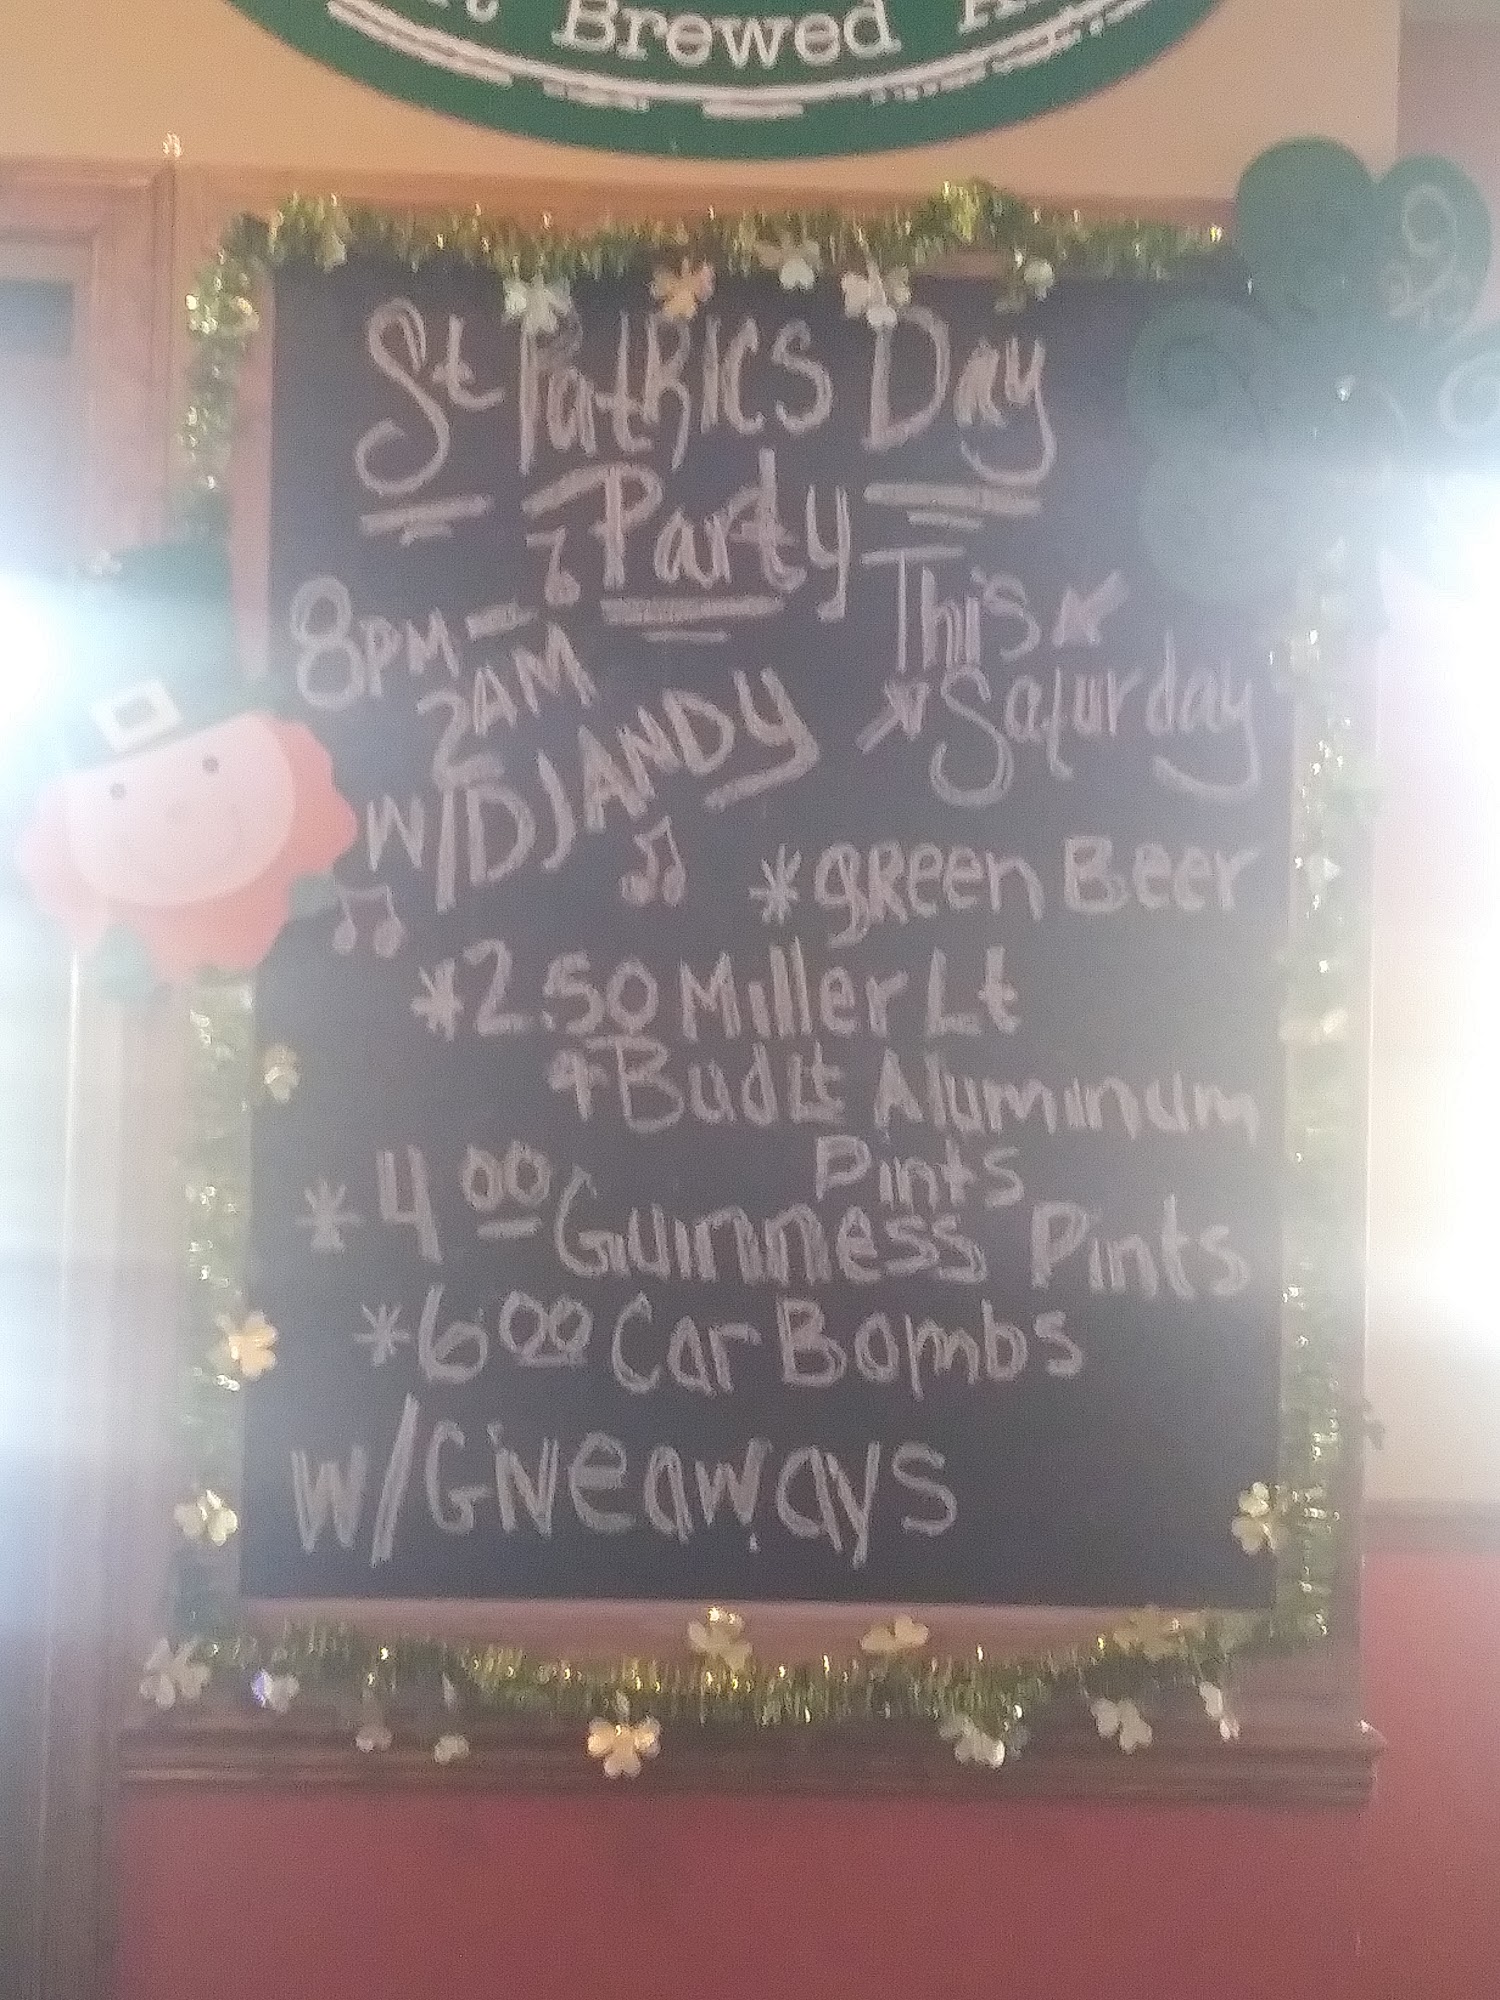 Brewed
St Patrics Day
Party
This
Saturday
8PM -
2AM
W/DJ ANDY
*green Beer
*2.50 Miller Lt
+ Bud Lt Aluminum
Pints
*4 00 Guinness Pints
*6 00 Car Bombs
W/Giveaways